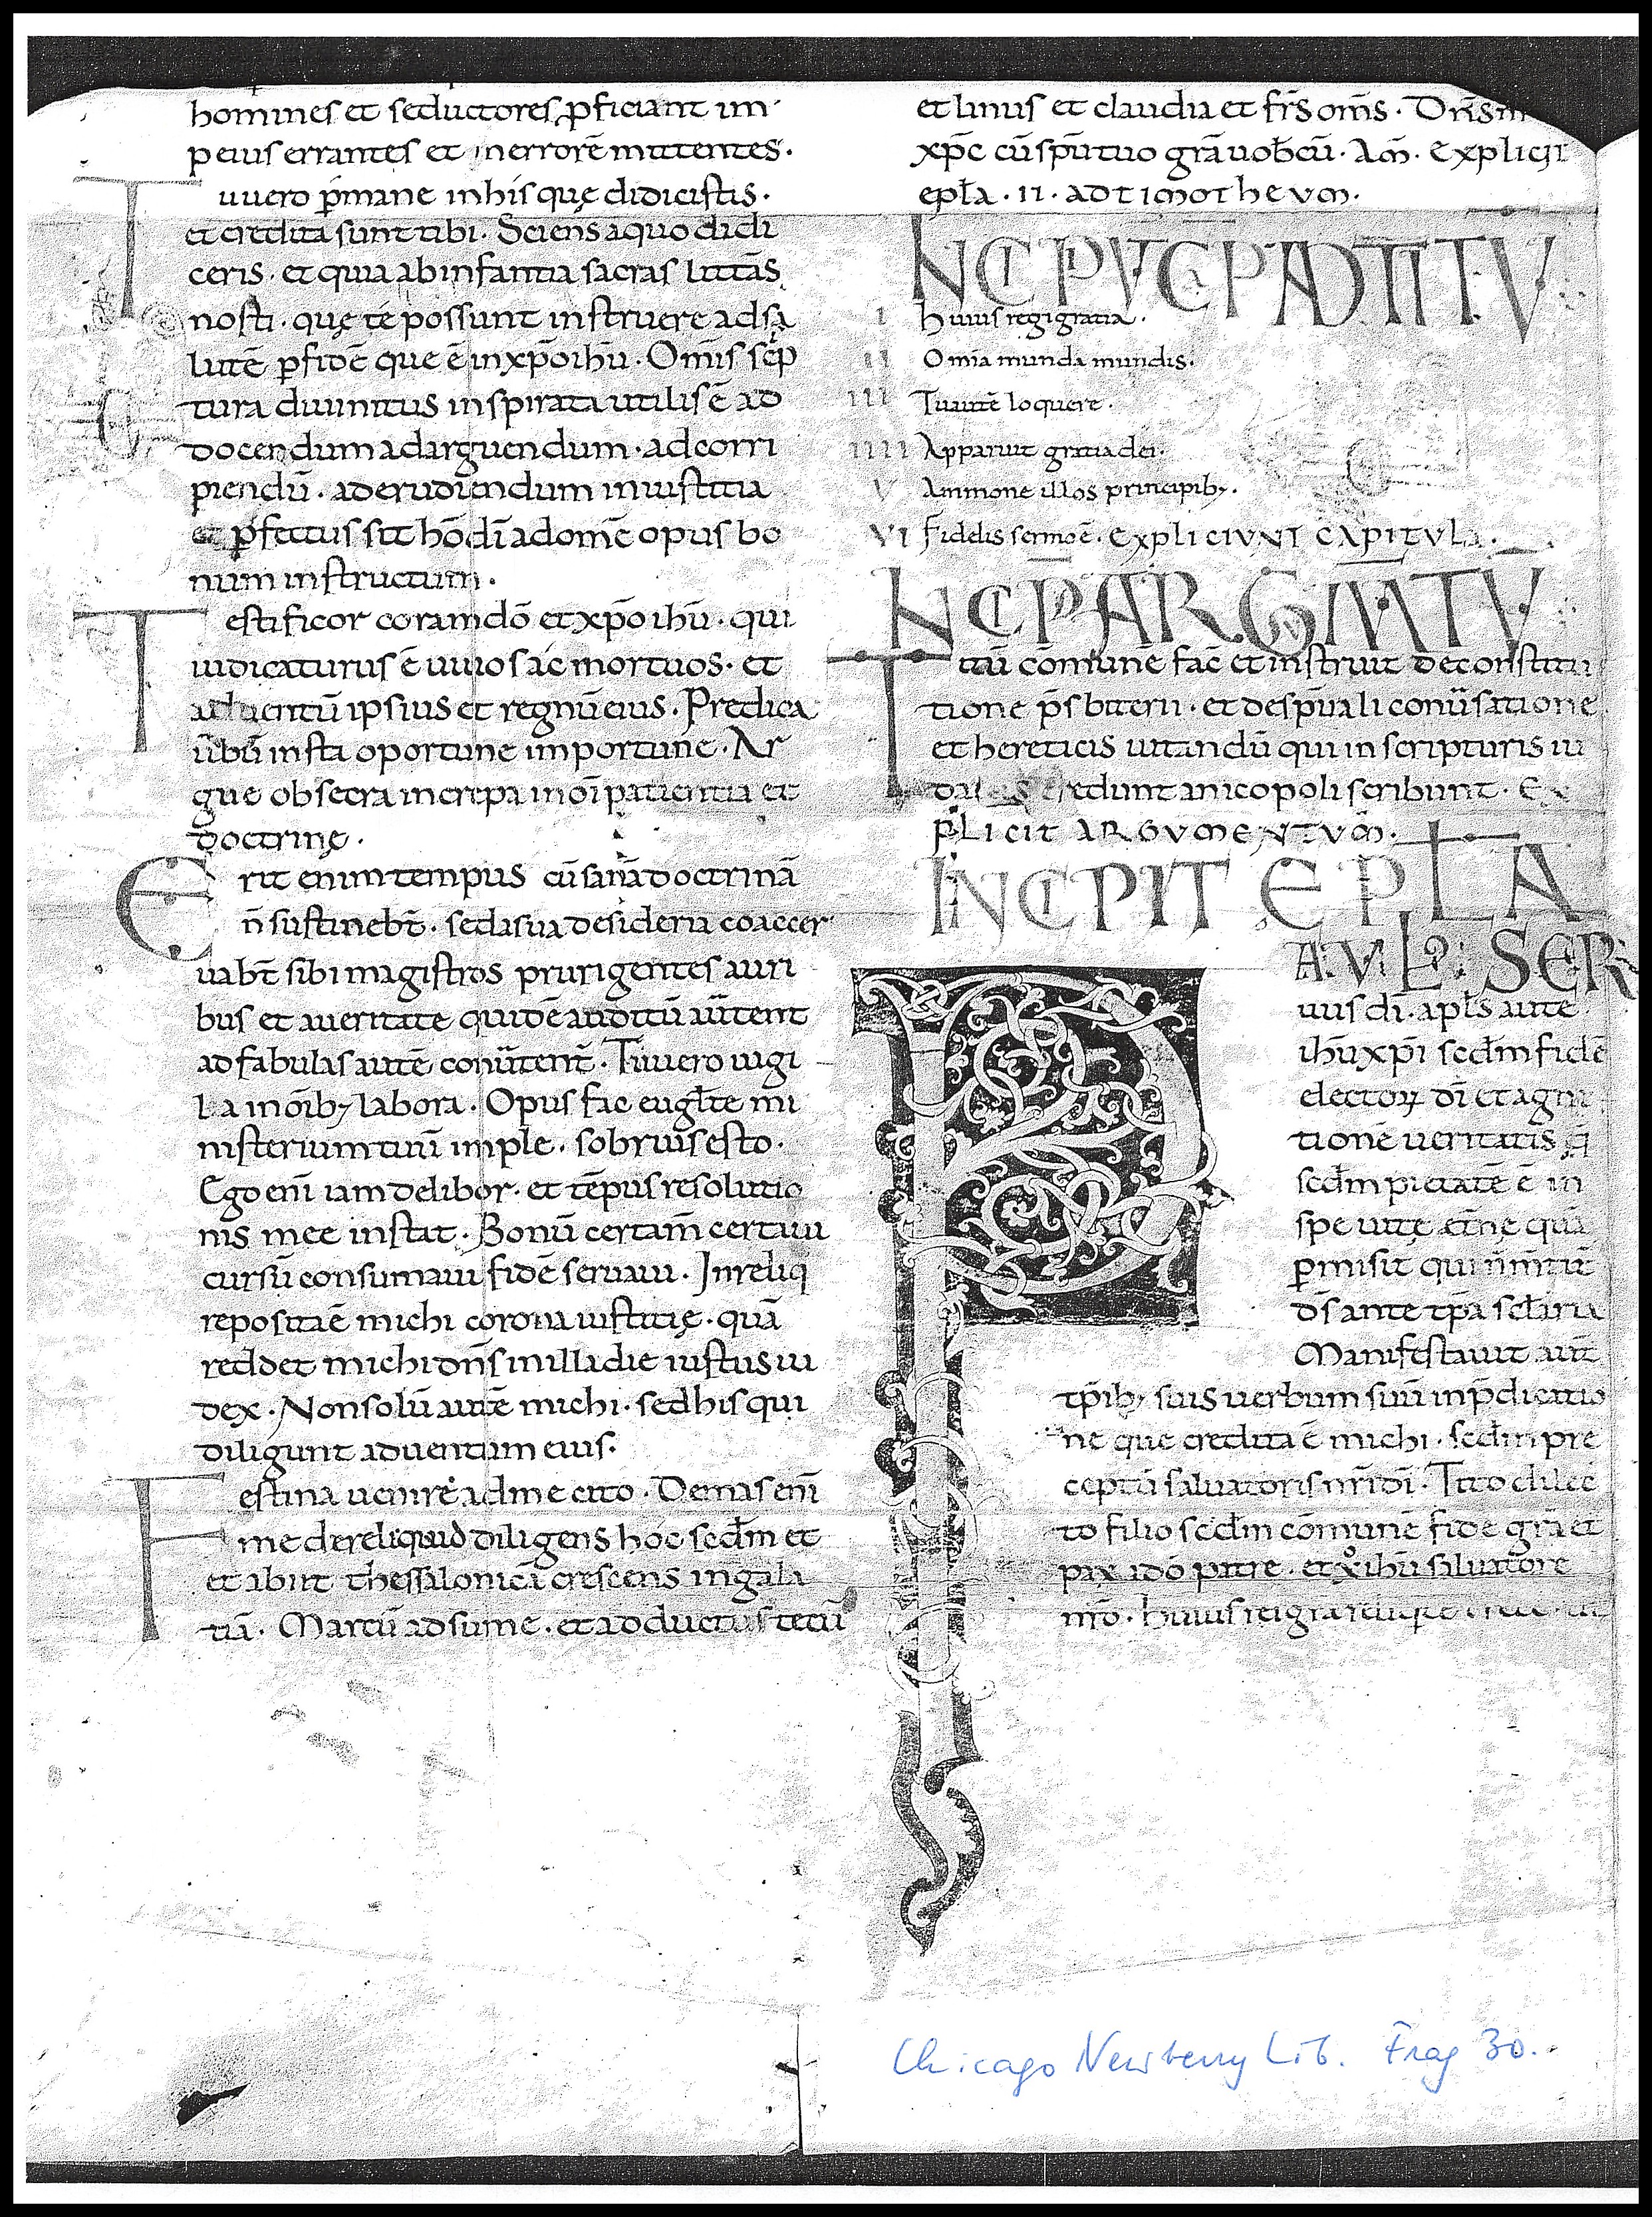 homines et seductores ꝓficiant im
peius errantes et inerrorē mittentes.
Tuuero ꝑmane inhis quę didicistis.
et credita sunt tibi. Sciens aquo didi
ceris. et quia abinfantia sacras littās
nosti. quę té possunt instruere adsa
lutē ꝑfidē que ē inxp̄oihū. Om̄is sc̄p
tura diuinitus inspirata utilis ē ad
docendum adarguendum. adcorri
piendū. aderudiendum iniustitia
et ꝑfectus sit hōdī adomē opus bo
num instructum.
Testificor coramdō etxp̄oihū. qui
iudicaturus ē uiuos ac mortuos. et
aduentū ipsius et regnū eius. Predica
ūbū insta oportune importune. Ar
gue obsecra increpa inōi patientia et
doctrinę.
Erit enim tempus cū sanā doctrinā
n̄ sustinebt̄. sed asua desideria coaccer
uabt̄ sibi magistros prurigentes auri
bus et aueritate quidē auditū aūtent
adfabulas autē conūtent̄. Tuuero uigi
la inōibꝫ labora. Opus fac eugl̄te mi
nisterium tuū imple. sobruis esto.
Ego eni̅ iam delibor. et tēpus resolutio
nis mee instat. Bonū certam̄ certaui
cursū consumaui fidē seruaui. Inreliq
reposita ē michi corona iustitię. quā
reddet michi dn̄s inilla die iustus iu
dex. Nonsolū autē michi. sed his qui
diligunt aduentum eius.
Festina uenire adme cito. Demas eni̅
me dereliquid diligens hoc secl̄m et
et abiit thessalonicā crescens ingala
tiā. Marcū adsume. et adductus tecū
et linus et claudia et fr̄s om̄s. Dn̄s
xp̄c cū sp̄u tuo grā uobcū. Am̄. Explicit
epl̄a. II. adtimotheum.
INCPIUCPADTITU
I Huius regi gratia.
II Omīa munda mundis.
III Tuautē loquere.
IIII Apparuit gratia dei.
V Ammone illos principibꝫ.
VI Fidelis sermo ē. Expliciunt capitula.
INCPARGMTV
Titū cōmunē fac̄ et instruit deconstitu
tione p̄sbiterii. et despūali conūsatione
et hereticis uitandū qui in scripturis iu
credunt anicopoli scribunt. Ex
plicit argumentum.
INCPIT EPLA
PAVL9 SER
uus dī. apl̄s autē
ihū xp̄i secd̄m fidē
electoꝝ dī et agni
tionē ueritatis q̄
secd̄m pietatē ē in
spe uitę et̄nę quā
ꝑmisit qui n̄ mtit̄
ds̄ ante tp̄a secl̄aria
Manifestauit aut̄
tp̄ibꝫ suis uerbum suū inp̄dicatio
ne que credita ē michi. secd̄m pre
ceptū saluatoris nr̄i dī. Tito dilec
to filio secd̄m cōmunē fidē gr̄a et
pax adō patre. et xp̄o ihū saluatore
nr̄o. Huius rei gr̄a
Chicago Newberry Lib. Frag 30.